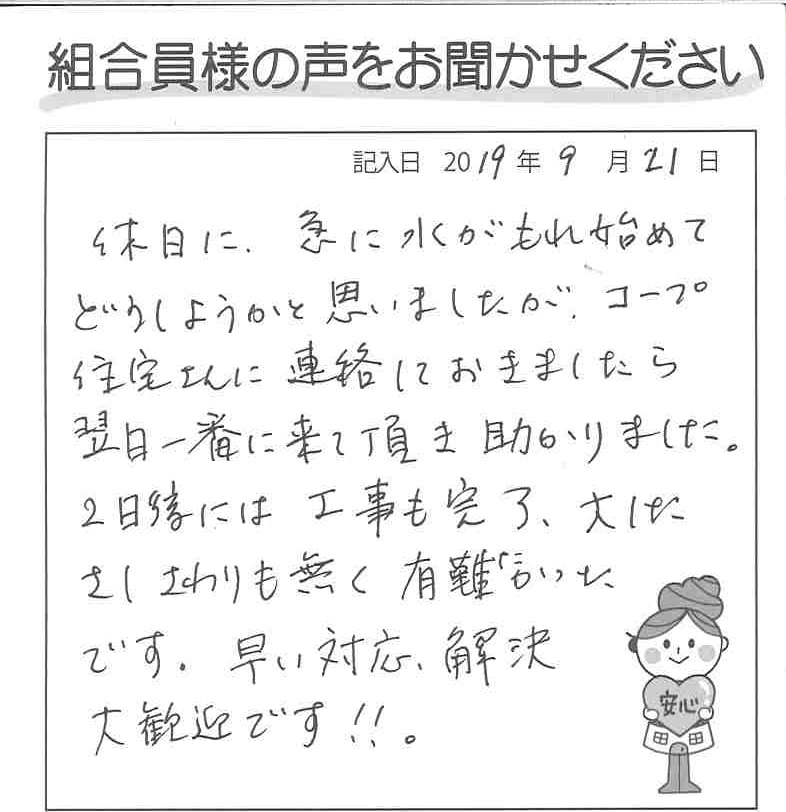 組合員様の声をお聞かせください
記入日 2019年 9 月 21 日
休日に、急に水がもれ始めて
どうしようかと思いましたが、コープ
住宅さんに連絡しておきましたら
翌日一番に来て頂き助かりました。
2日後には工事も完了、大した
さしさわりも無く有難かった
です。早い対応、解決
大歓迎です!!。
安心